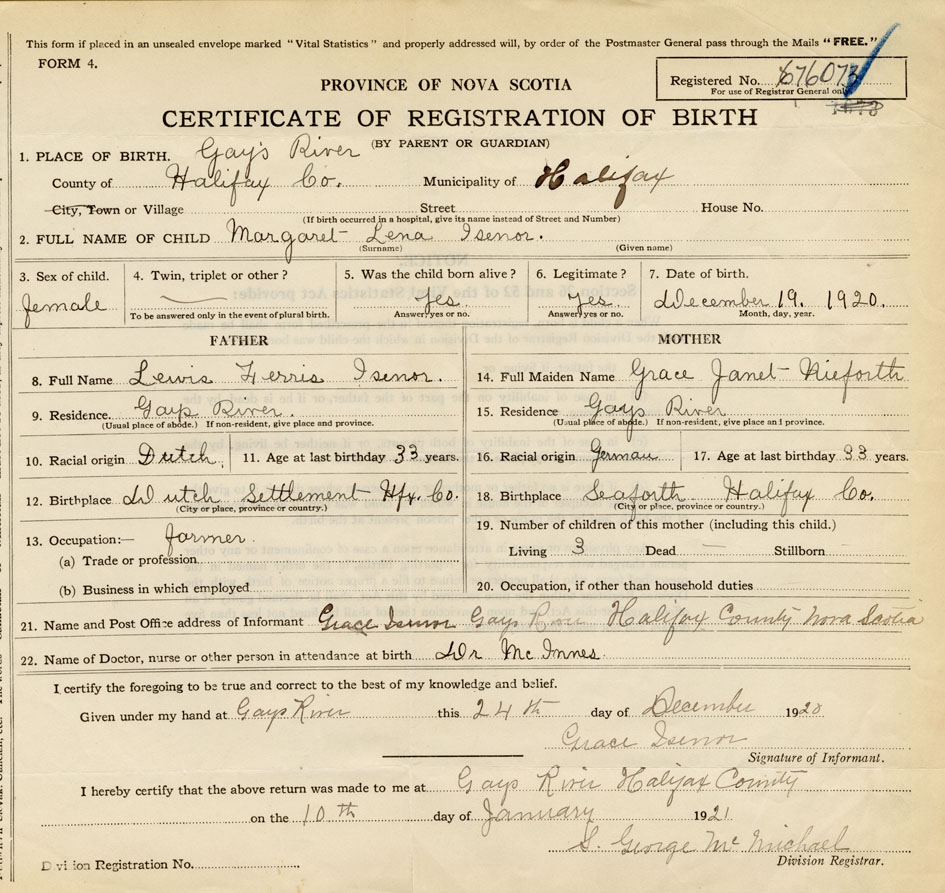 This form if placed in an unsealed envelope marked "Vital Statistics" and properly addressed will, by order of the Postmaster General pass through the Mails "FREE."
FORM 4.
Registered No. 676073
For use of Registrar General only
PROVINCE OF NOVA SCOTIA
CERTIFICATE OF REGISTRATION OF BIRTH
(BY PARENT OR GUARDIAN)
1. PLACE OF BIRTH. Gay's River
County of Halifax Co. Municipality of Halifax
City, Town or Village Street House No.
(If birth occurred in a hospital, give its name instead of Street and Number)
2. FULL NAME OF CHILD Margaret Lena Isenor.
(Surname) (Given name)
3. Sex of child. 4. Twin, triplet or other? 5. Was the child born alive? 6. Legitimate? 7. Date of birth.
female Yes. Yes. December 19. 1920.
To be answered only in the event of plural birth. Answer yes or no. Answer yes or no. Month, day, year.
FATHER
8. Full Name Lewis Ferris Isenor.
9. Residence. Gays River.
(Usual place of abode.) If non-resident, give place and province.
10. Racial origin Dutch. 11. Age at last birthday 33 years.
12. Birthplace Dutch Settlement Hfx. Co.
(City or place, province or country.)
13. Occupation:— farmer.
(a) Trade or profession
(b) Business in which employed
MOTHER
14. Full Maiden Name Grace Janet Nieforth
15. Residence Gays River
(Usual place of abode.) If non-resident, give place and province.
16. Racial origin German 17. Age at last birthday 33 years.
18. Birthplace Seaforth Halifax Co.
(City or place, province or country.)
19. Number of children of this mother (including this child.)
Living 3 Dead — Stillborn
20. Occupation, if other than household duties
21. Name and Post Office address of Informant Grace Isenor Gays River Halifax County Nova Scotia
22. Name of Doctor, nurse or other person in attendance at birth Dr McInnes.
I certify the foregoing to be true and correct to the best of my knowledge and belief.
Given under my hand at Gays River this 24th day of December 1920
Grace Isenor
Signature of Informant.
I hereby certify that the above return was made to me at Gays River Halifax County
on the 10th day of January 1921
S. George McMichael
Division Registrar.
Division Registration No.